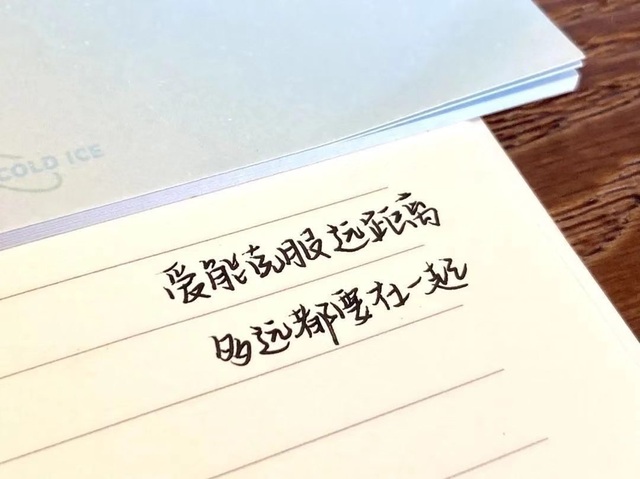 COLD ICE
爱能克服远距离
多远都要在一起